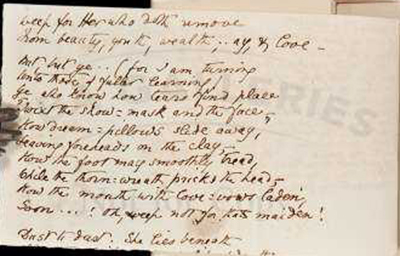 Weep for Her who doth remove
From beauty, youth, wealth; .. ay, & Love —
But ye .. (for I am turning
Unto of fuller learning)
Ye who know how tears find place
'Twixt the show=mask and the face,
How dream=pillows slide away,
Leaving foreheads on the clay,—
How the foot may smoothly tread,
While the thorn=wreath pricks the head,—
How the mouth with Love=vows laden,
Soon ... ! Oh, weep not for that maiden!
Dust to dust. She lies beneath